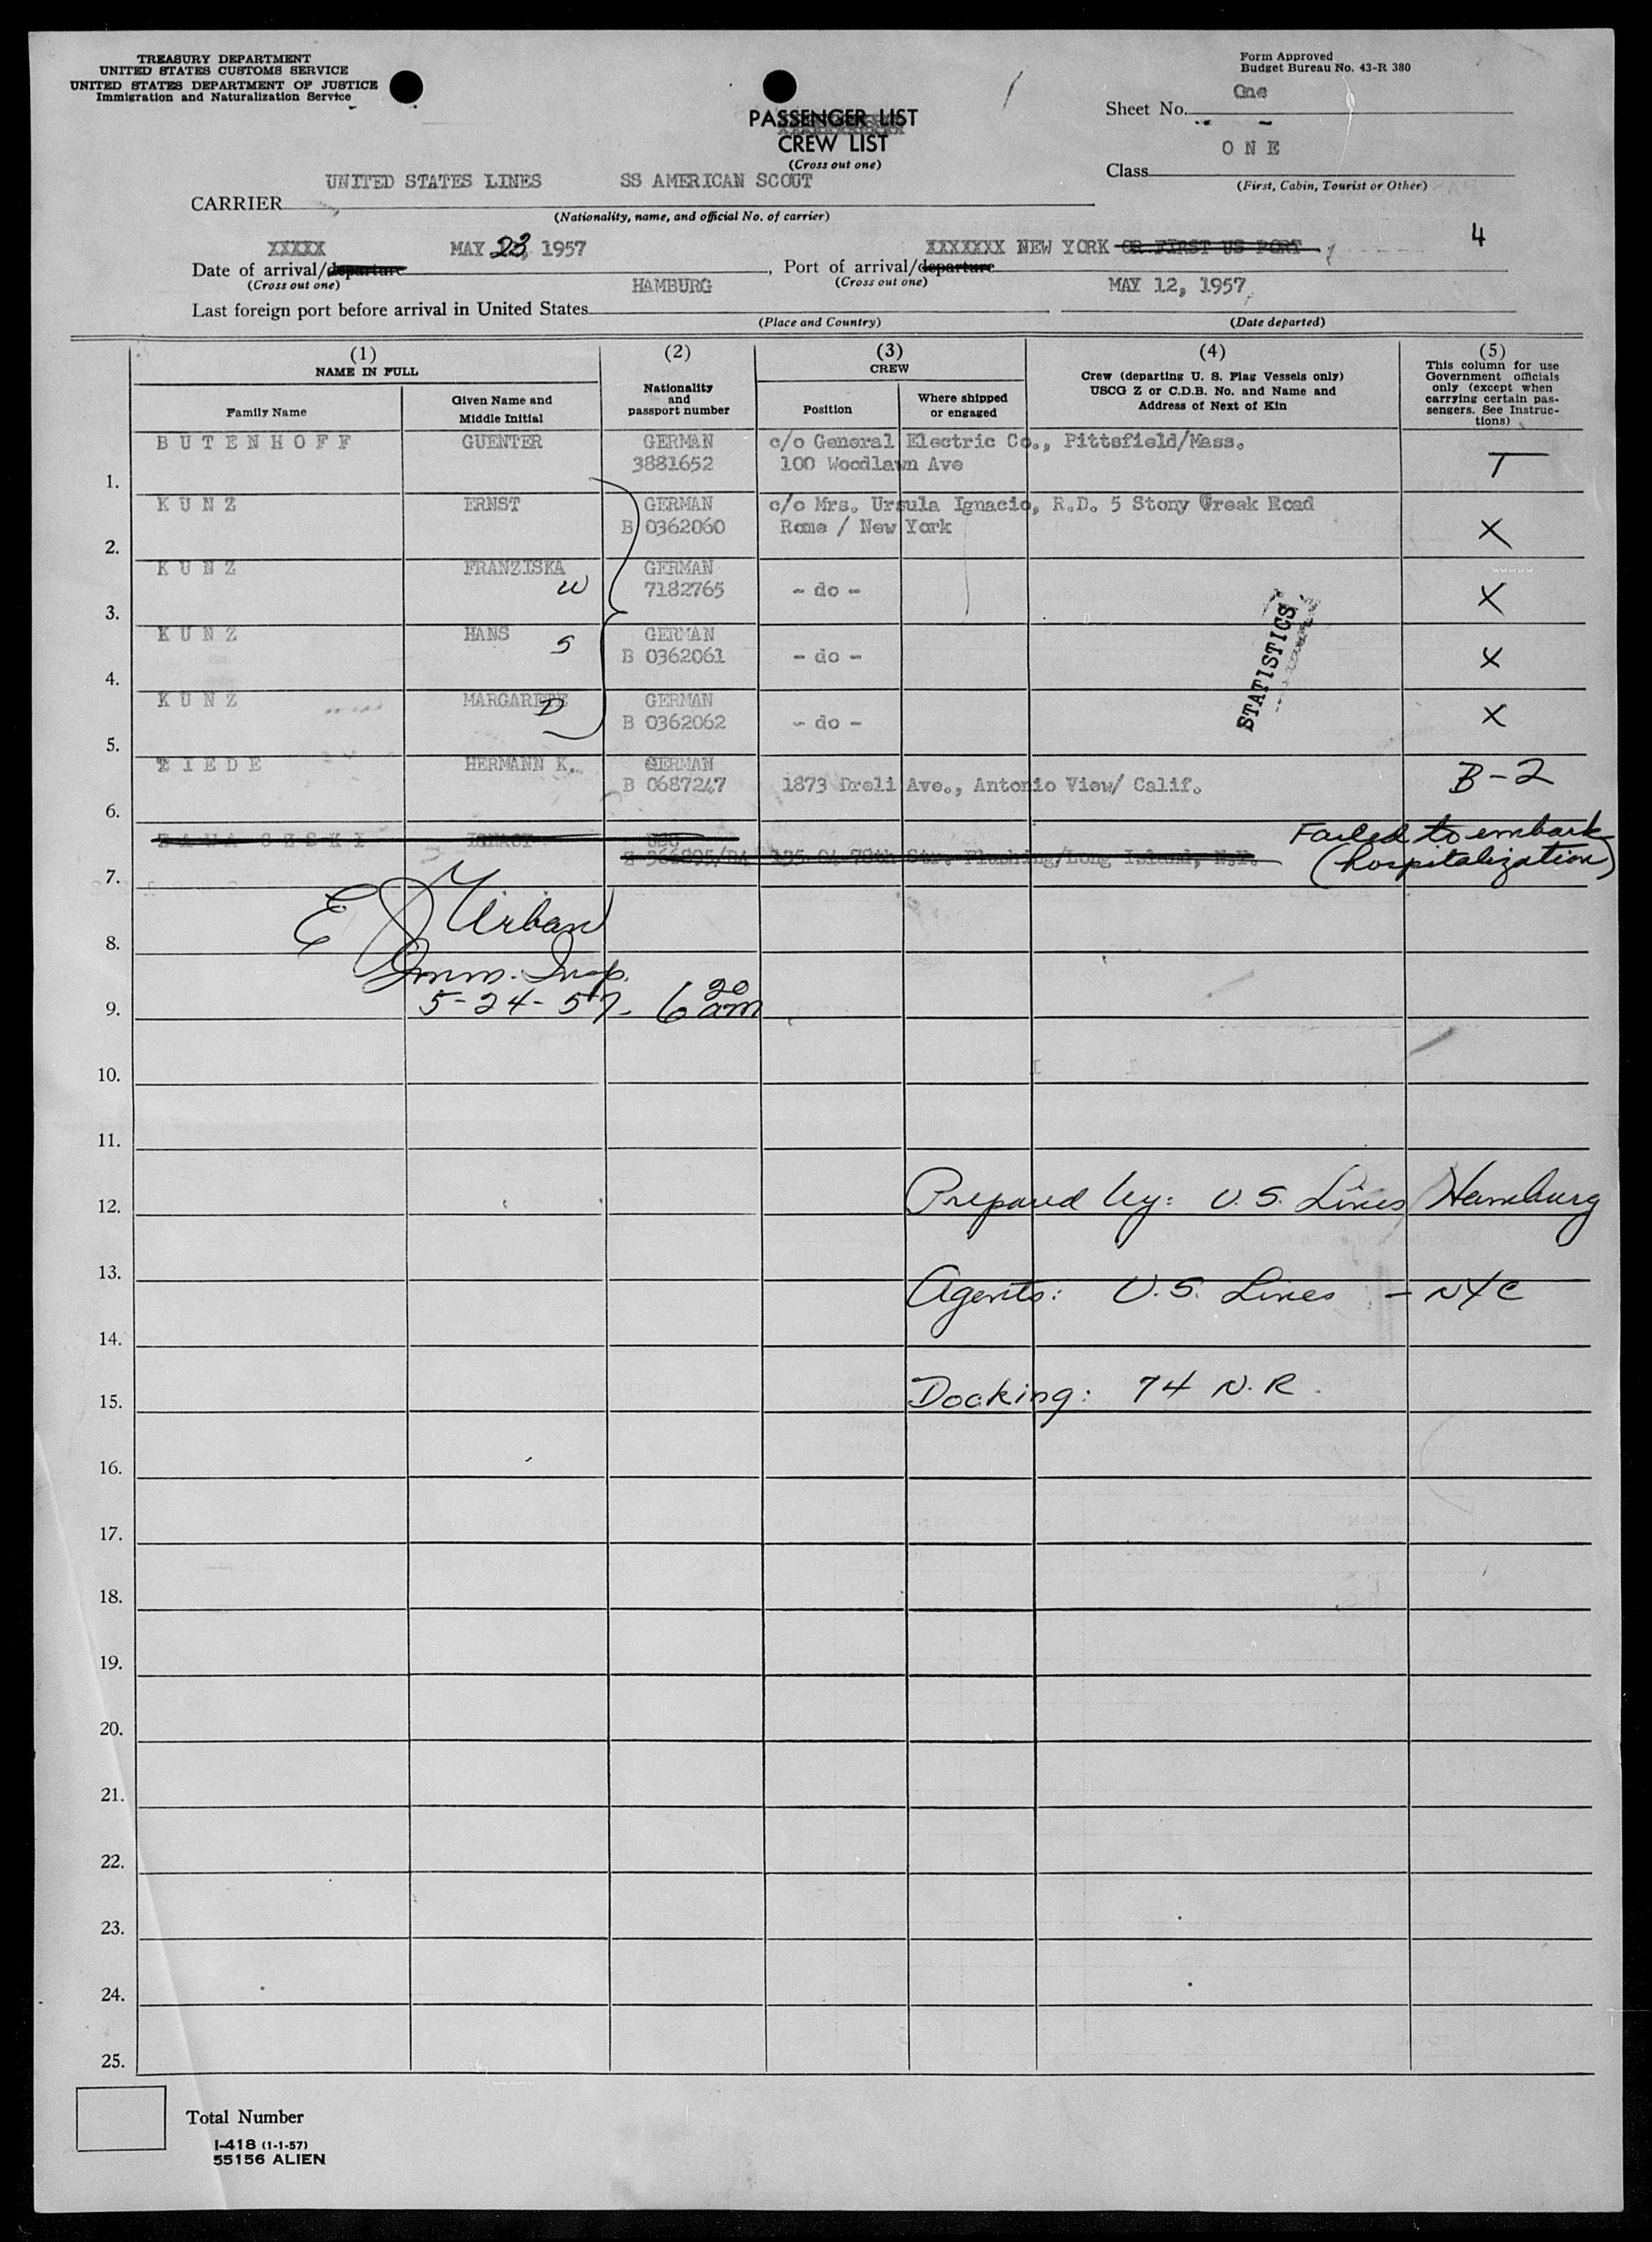 TREASURY DEPARTMENT
UNITED STATES CUSTOMS SERVICE
UNITED STATES DEPARTMENT OF JUSTICE
Immigration and Naturalization Service
Form Approved
Budget Bureau No. 43-R 380
PASSENGER LIST
CREW LIST
(Cross out one)
Sheet No. One
Class ONE
(First, Cabin, Tourist or Other)
CARRIER UNITED STATES LINES SS AMERICAN SCOUT
(Nationality, name, and official No. of carrier)
4
XXXXX MAY 23, 1957 XXXXXXX NEW YORK OR FIRST US PORT
Date of arrival/departure , Port of arrival/departure
(Cross out one) (Cross out one)
HAMBURG MAY 12, 1957
Last foreign port before arrival in United States
(Place and Country) (Date departed)
(1) NAME IN FULL
Family Name
Given Name and Middle Initial
(2) Nationality and passport number
(3) CREW
Position
Where shipped or engaged
(4) Crew (departing U. S. Flag Vessels only) USCG Z or C.D.B. No. and Name and Address of Next of Kin
(5) This column for use Government officials only (except when carrying certain passengers. See Instructions)
1. BUTENHOFF GUENTER GERMAN c/o General Electric Co., Pittsfield/Mass.
3881652 100 Woodlawn Ave T
2. KUNZ ERNST GERMAN c/o Mrs. Ursula Ignacio, R.D. 5 Stony Creek Road
B 0362060 Rome / New York X
3. KUNZ FRANZISKA W GERMAN
7182765 - do - X
4. KUNZ HANS S GERMAN
B 0362061 - do - X
5. KUNZ MARGARETE D GERMAN
B 0362062 - do - X
STATISTICS
6. TIEDE HERMANN K. GERMAN
B 0687247 1873 Dreli Ave., Antonio View/ Calif. B-2
7. IGNACY
135-04 78th Str. Flushing/Long Island, N.Y.
Failed to embark
(hospitalization)
8. E J Urban
Imm. Insp.
9. 5-24-57- 6 20 am
10.
11.
12. Prepared by: U.S. Lines Hamburg
13.
Agents: U.S. Lines - NYC
14.
15. Docking: 74 N.R.
16.
17.
18.
19.
20.
21.
22.
23.
24.
25.
Total Number
I-418 (1-1-57)
55156 ALIEN